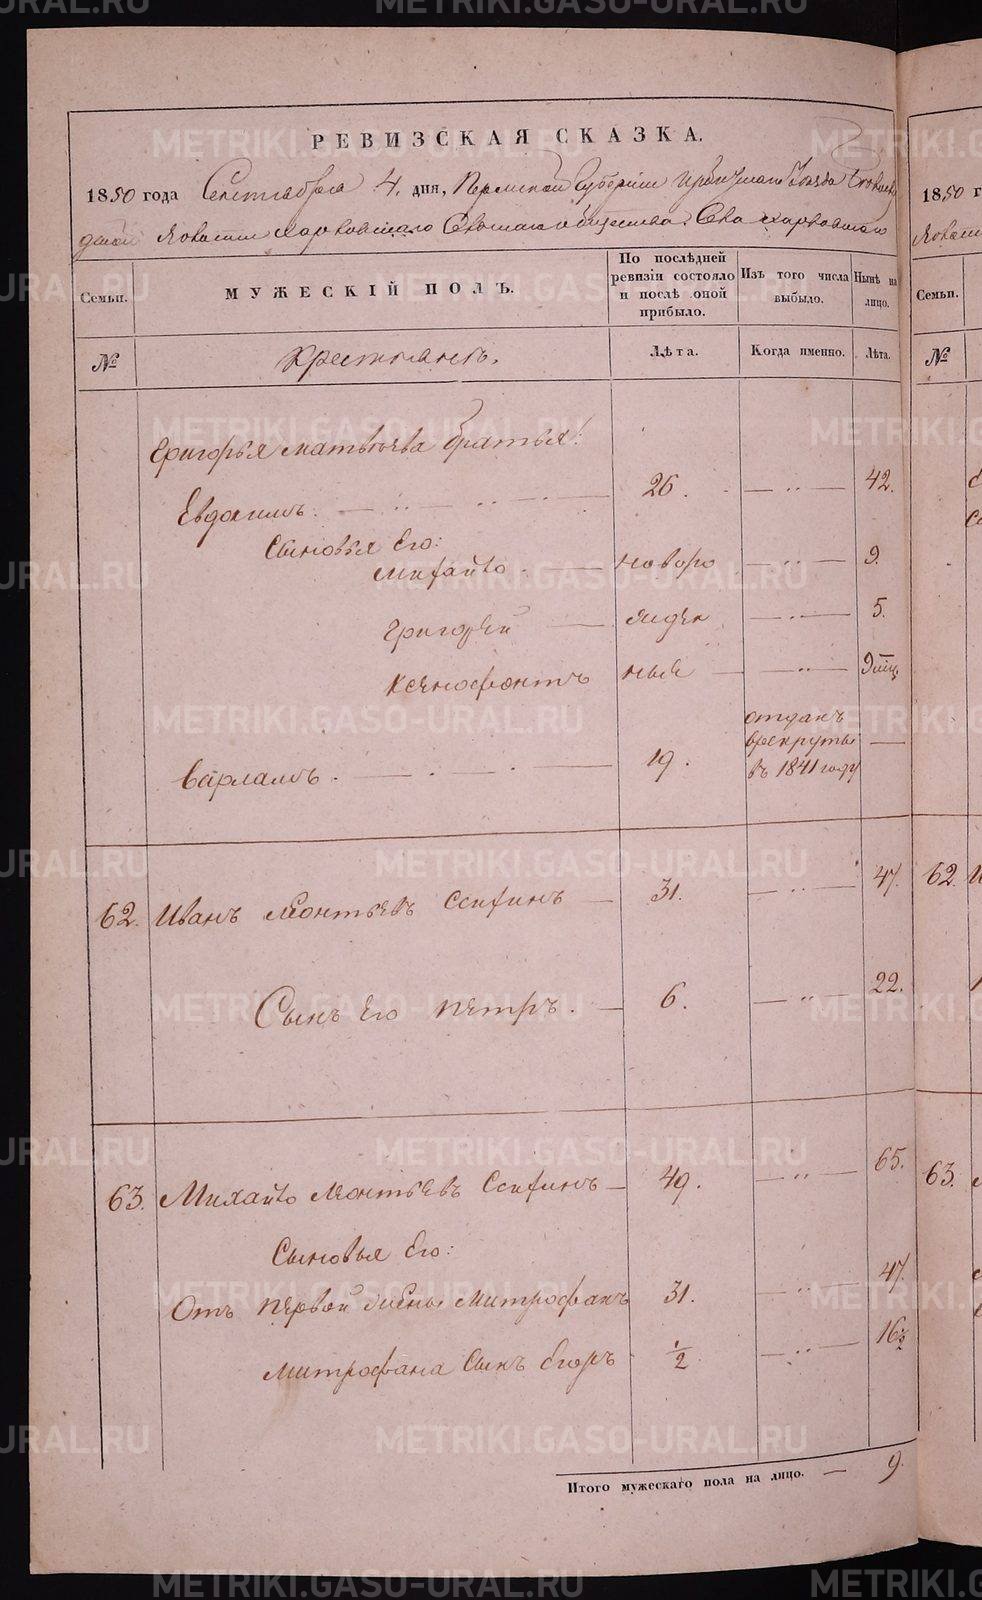 METRIKI.GASO-URAL.RU
РЕВИЗСКАЯ СКАЗКА.
1850 года Сентября 4. дня, Пермской Губерніи Ирбитскаго Уезда
Волости Харловскаго Села Харловскаго
Семьи.
МУЖЕСКІЙ ПОЛЪ.
По послѣдней ревизіи состояло и послѣ оной прибыло.
Изъ того числа выбыло.
Нынѣ на лицо.
№
Крестьянъ.
Лѣта.
Когда именно.
Лѣта.
Григорья Матвѣева братья:
Евдокимъ. 26. — „ — 42.
Сыновья Его:
Михайло. — новоро — „ — 9.
Григорей — жден — „ — 5.
Ксенофонтъ ные — „ — 9 мц.
Варламъ. — 19. отданъ врекруты въ 1841 году —
62. Иванъ Леонтьевъ Ссипинъ — 31. — „ — 47.
Сынъ Его Петръ. — 6. — „ — 22.
63. Михайло Леонтьевъ Ссипинъ — 49. — „ — 65.
Сыновья Его:
Отъ первой жены Митрофанъ 31. — „ — 47.
Митрофана сынъ Егоръ 1/2 — „ — 16 1/2
Итого мужескаго пола на лицо. — 9.
1850 г
Семьи.
№
62.
63.